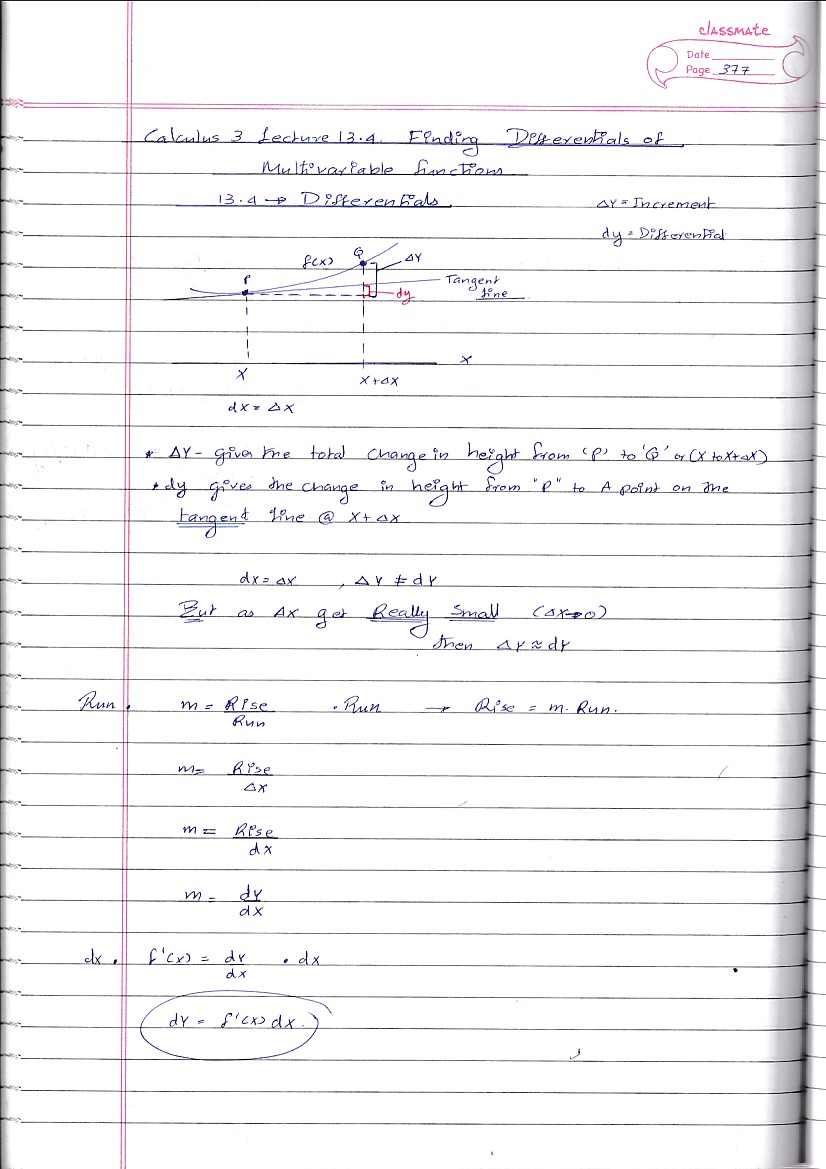 classmate
Date
Page 377
Calculus 3 Lecture 13.4. Finding Differentials of
Multivariable functions
13.4 → Differentials.
ΔY = Increment
dy = Differential
f(x) Q ΔY
P Tangent
line
dy
X
X X+ΔX
dx = Δx
* ΔY - gives the total change in height from 'P' to 'Q' or (X to X+ΔX)
* dy gives the change in height from "P" to A point on the
tangent line @ X+ΔX
dx = Δx , ΔY ≠ dY
But as Δx get Really Small (Δx→0)
then ΔY ≈ dY
Run . m = Rise/Run . Run → Rise = m. Run.
m = Rise/Δx
m = Rise/dx
m = dY/dx
dx . f'(x) = dY/dx . dx
dY = f'(x) dx.